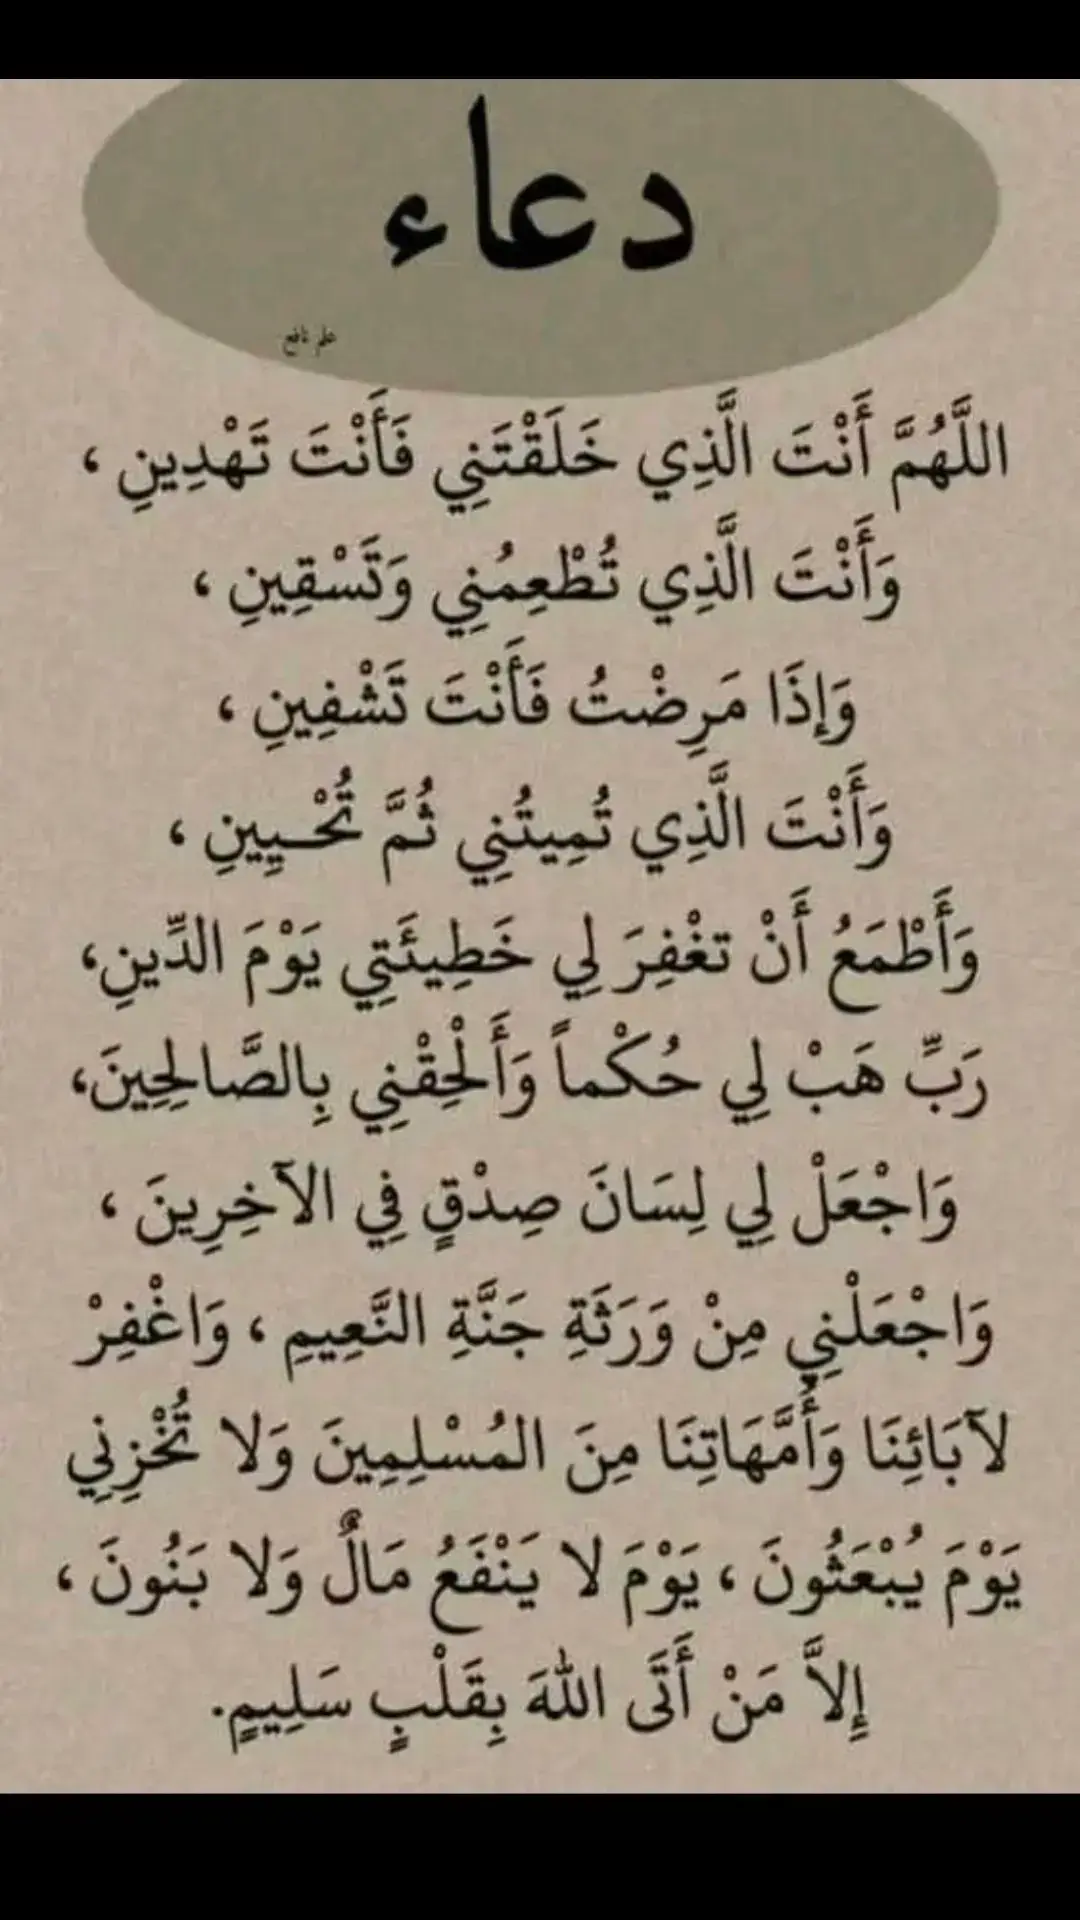 دعاء
علم نافع
اللَّهُمَّ أَنْتَ الَّذِي خَلَقْتَنِي فَأَنْتَ تَهْدِينِ ،
وَأَنْتَ الَّذِي تُطْعِمُنِي وَتَسْقِينِ ،
وَإِذَا مَرِضْتُ فَأَنْتَ تَشْفِينِ ،
وَأَنْتَ الَّذِي تُمِيتُنِي ثُمَّ تُحْـيِينِ ،
وَأَطْمَعُ أَنْ تغْفِرَ لِي خَطِيئَتِي يَوْمَ الدِّينِ،
رَبِّ هَبْ لِي حُكْماً وَأَلْحِقْنِي بِالصَّالِحِينَ،
وَاجْعَلْ لِي لِسَانَ صِدْقٍ فِي الآخِرِينَ ،
وَاجْعَلْنِي مِنْ وَرَثَةِ جَنَّةِ النَّعِيمِ ، وَاغْفِرْ
لآبَائِنَا وَأُمَّهَاتِنَا مِنَ المُسْلِمِينَ وَلا تُخْزِنِي
يَوْمَ يُبْعَثُونَ ، يَوْمَ لا يَنْفَعُ مَالٌ وَلا بَنُونَ ،
إِلاَّ مَنْ أَتَى اللهَ بِقَلْبٍ سَلِيمٍ.